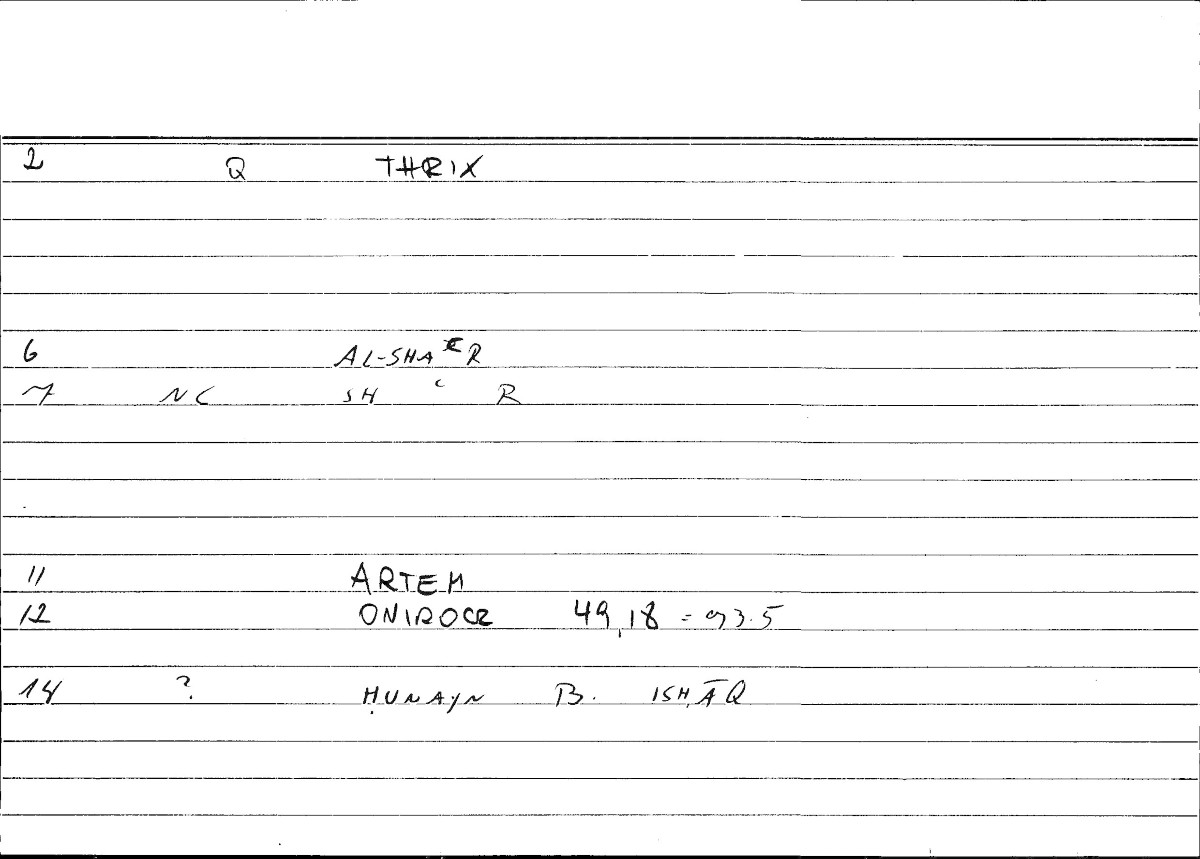 2 Q THRIX
6 AL-SHAʿR
7 NC SH ʿ R
11 ARTEM
12 ONIROCR 49,18 = 93.5
14 ? ḤUNAYN B. ISḤĀQ